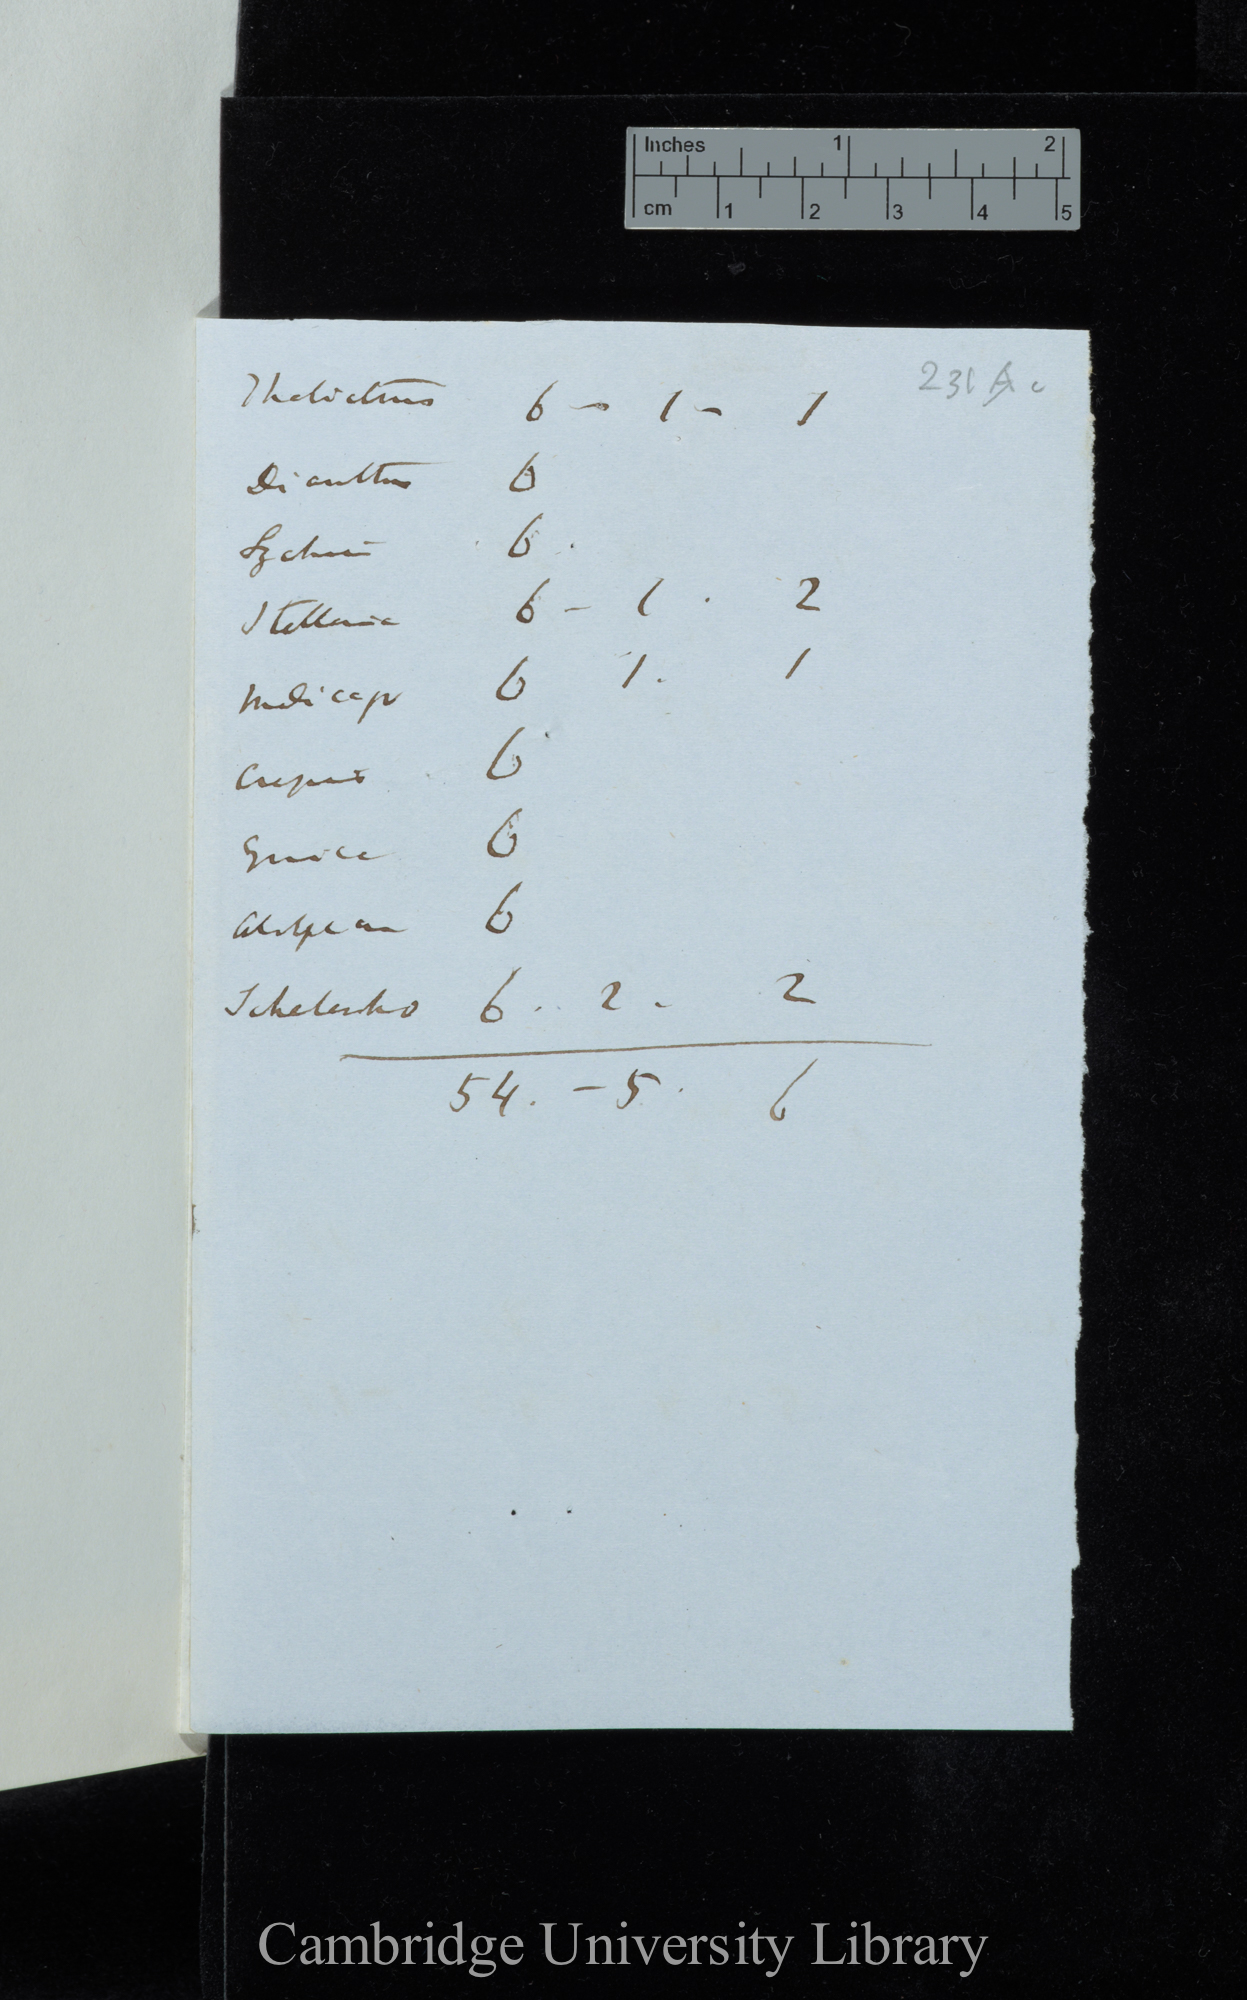 Inches 1 2
cm 1 2 3 4 5
231 A c
Thalictrum 6 – 1 – 1
Dianthus 6
Lychnis 6 .
Stellaria 6 – 1 . 2
Medicago 6 1. 1
Crepis 6
6
6
6 . 2 . 2
54. – 5. 6
Cambridge University Library